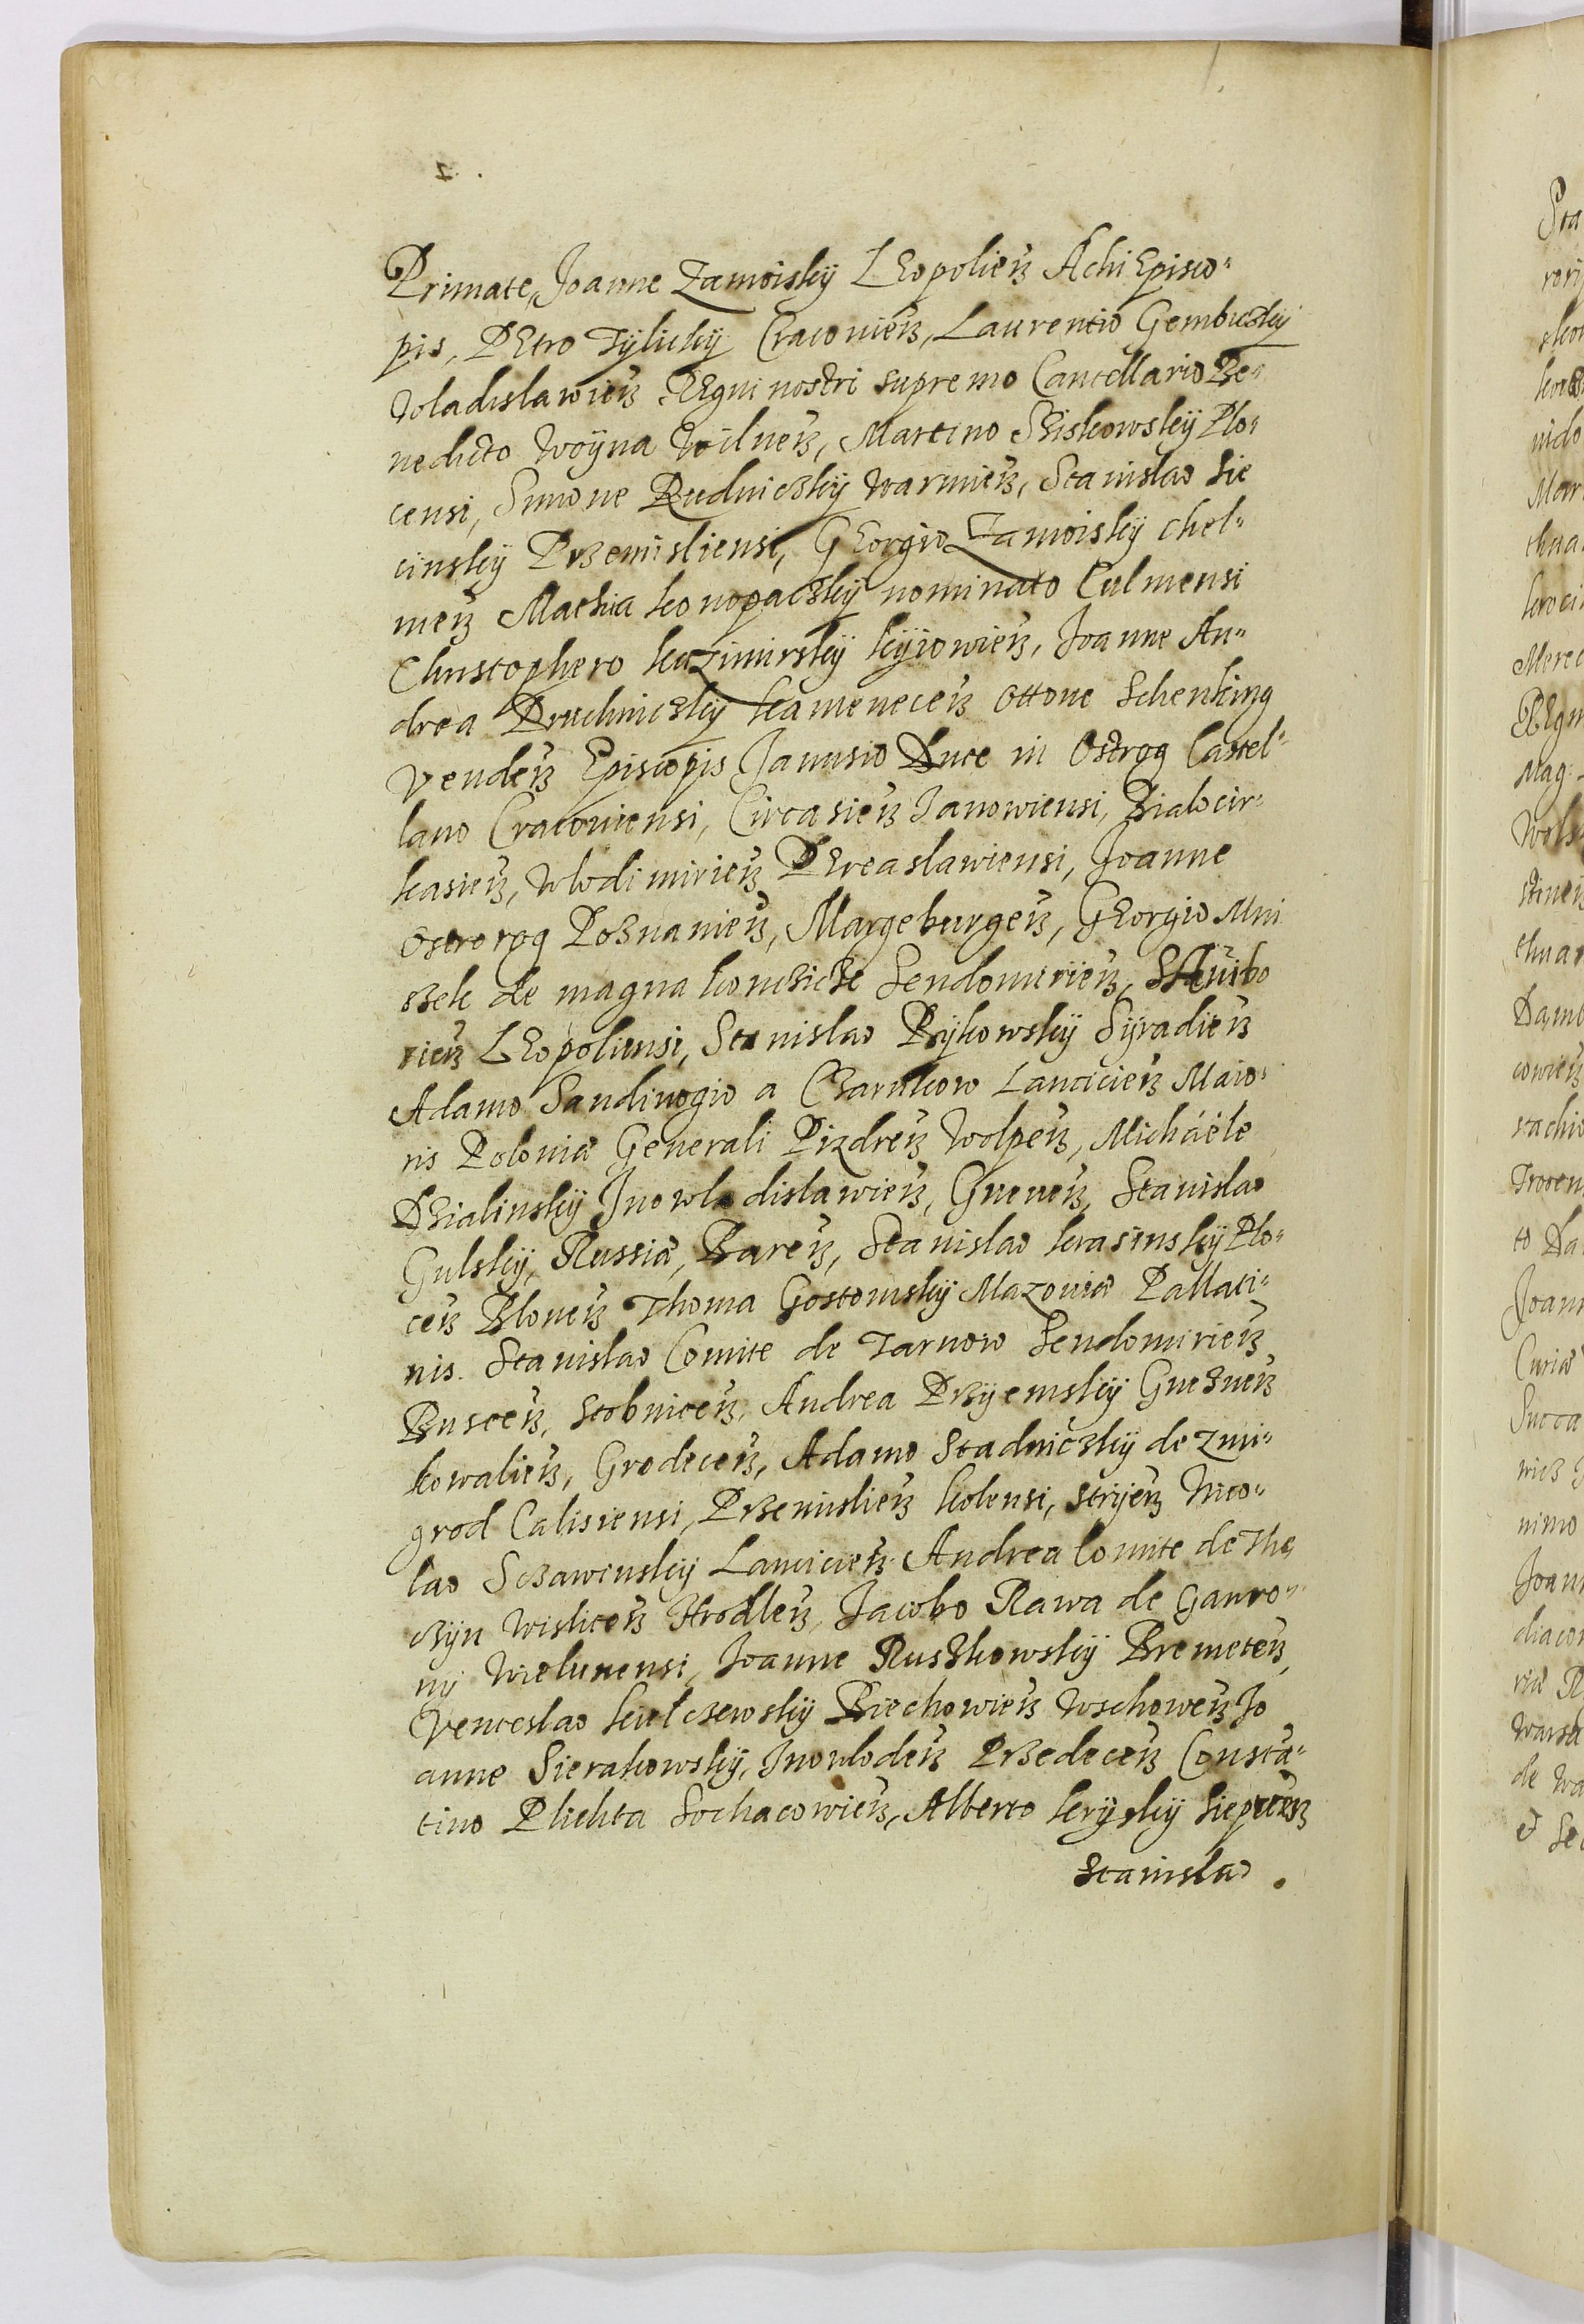 Primate, Joanne Zamoiskÿ LEopolieñ AchiEpisco-
pis, PEtro Tÿlickÿ Cracovieñ, Laurentio Gembickÿ
Wladislawieñ REgni nostri supremo Cancellario Be-
nedicto Woÿna Wilneñ, Martino Siskowskÿ Plo-
censi, Simone Rudniczkÿ Warmieñ, Stanislao Sie
cinskÿ Przemisliensi, GEorgio Zamoiskÿ Chel-
meñ Mathia Konopaczkÿ nominato Culmensi
Christophero Kazimirskÿ Kÿiowieñ, Joanne An-
drea Pruchniczkÿ Kameneceñ Ottone Schenking
Vendeñ Episcopis Janusio Duce in Ostrog Castel-
lano Cracoviensi, Circasieñ Janowiensi, Bialocir-
kasieñ, Wlodimirieñ PEreaslawiensi, Joanne
Ostrorog Poznanieñ, Margeburgeñ, GEorgio Mni
szek de magna Konczicze Sendomirieñ, Sambo
rieñ LEopoliensi, Stanislao Bÿkowskÿ Sÿradieñ
Adamo Sandivogio a Czarnkow Lancicieñ Maio-
ris Poloniæ Generali Pizdreñ Wolpeñ, Michaële
Dzialinskÿ Jnowladislawieñ, Gneveñ, Stanislao
Gulskÿ, Russiæ, Bareñ, Stanislao Krasinskÿ Plo-
ceñ Bloneñ Thoma Gostomskÿ Mazoviæ Pallati-
nis. Stanislao Comite de Tarnow Sendomirieñ
Busceñ, Stobniceñ, Andrea Przÿemskÿ Gnezneñ
Kowalieñ, Grodeceñ, Adamo Stadniczkÿ de Zmi-
grod Calisiensi, Przemislieñ Kolensi, Strijeñ Nico-
lao Sczawinskÿ Lancicieñ Andrea Comite de The
czÿn Wisliceñ Hrodleñ, Jacobo Rawa de Gawro-
nÿ Wielunensi, Joanne Ruszkowskÿ Brzmeteñ,
Venceslao Kielczewskÿ Biechowieñ Wschoweñ Jo
anne Sierakowskÿ, Jnowlodeñ Przedeceñ Consta-
tino Plichta Sochacowieñ, Alberto Krÿskÿ Siepreñ
Stanislao.